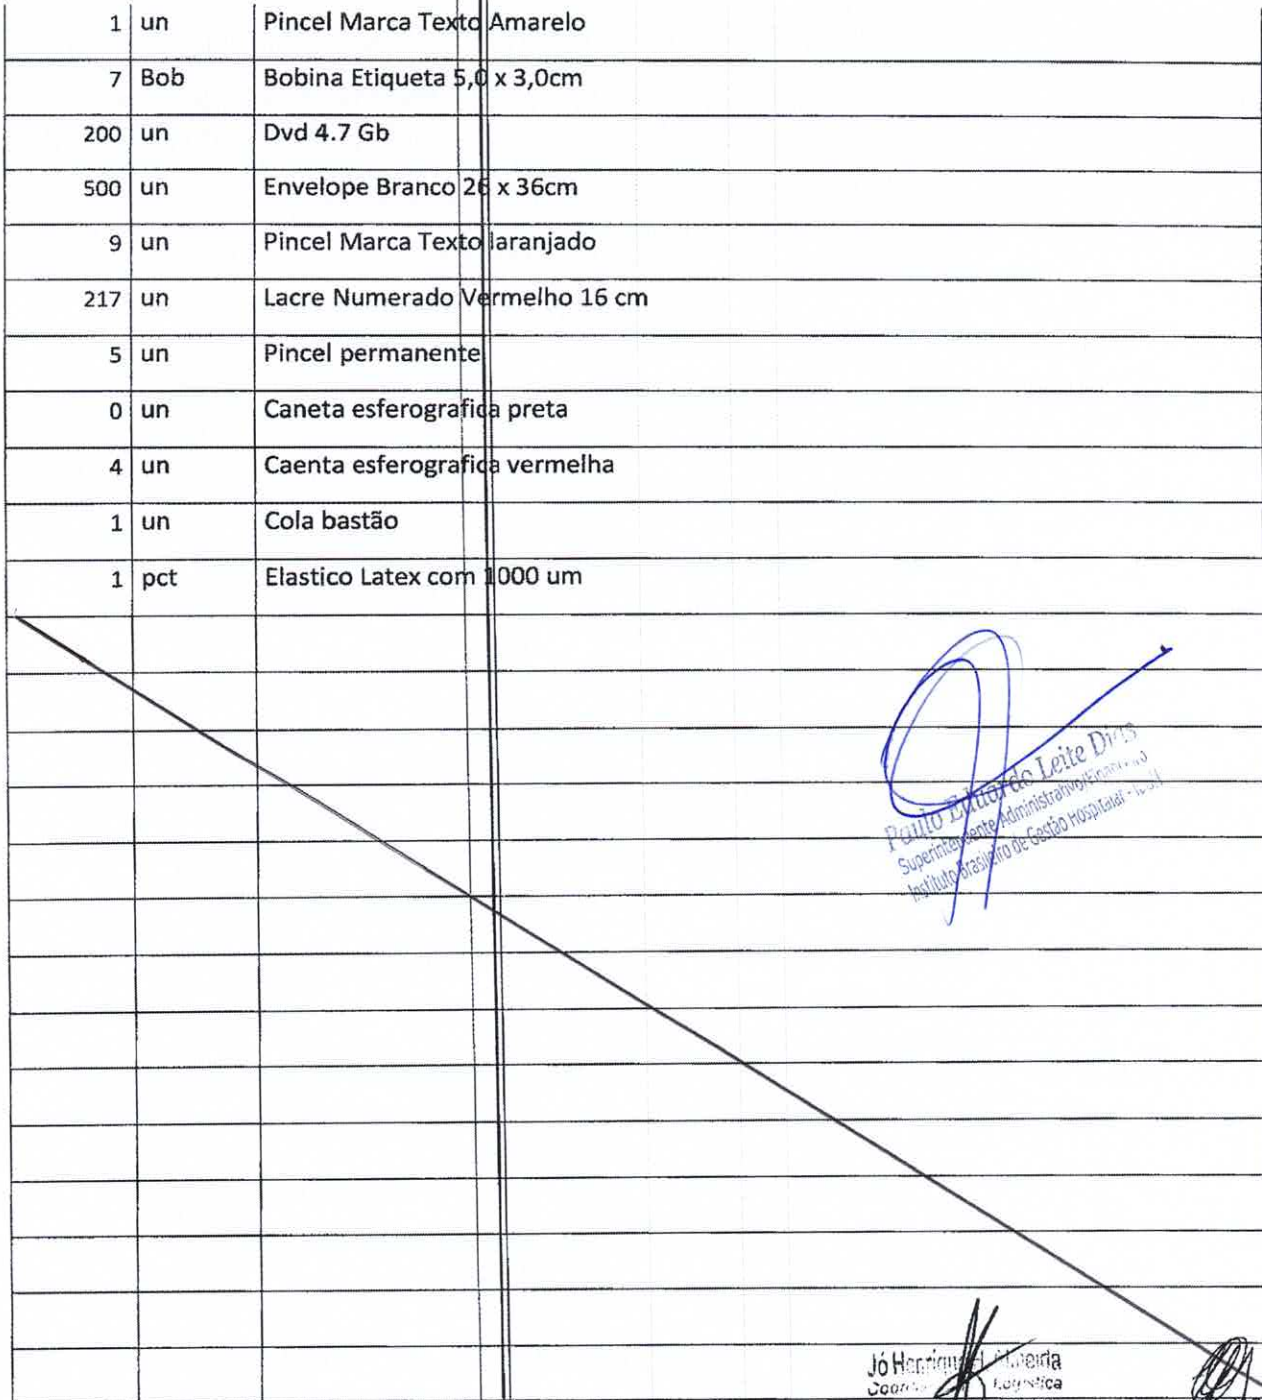 1 un Pincel Marca Texto Amarelo
7 Bob Bobina Etiqueta 5,0 x 3,0cm
200 un Dvd 4.7 Gb
500 un Envelope Branco 26 x 36cm
9 un Pincel Marca Texto laranjado
217 un Lacre Numerado Vermelho 16 cm
5 un Pincel permanente
0 un Caneta esferografica preta
4 un Caenta esferografica vermelha
1 un Cola bastão
1 pct Elastico Latex com 1000 um
Paulo Eduardo Leite Dias
Superintendente Administrativo/Financeiro
Instituto Brasileiro de Gestão Hospitalar -
Jó Henrique Almeida
Logística